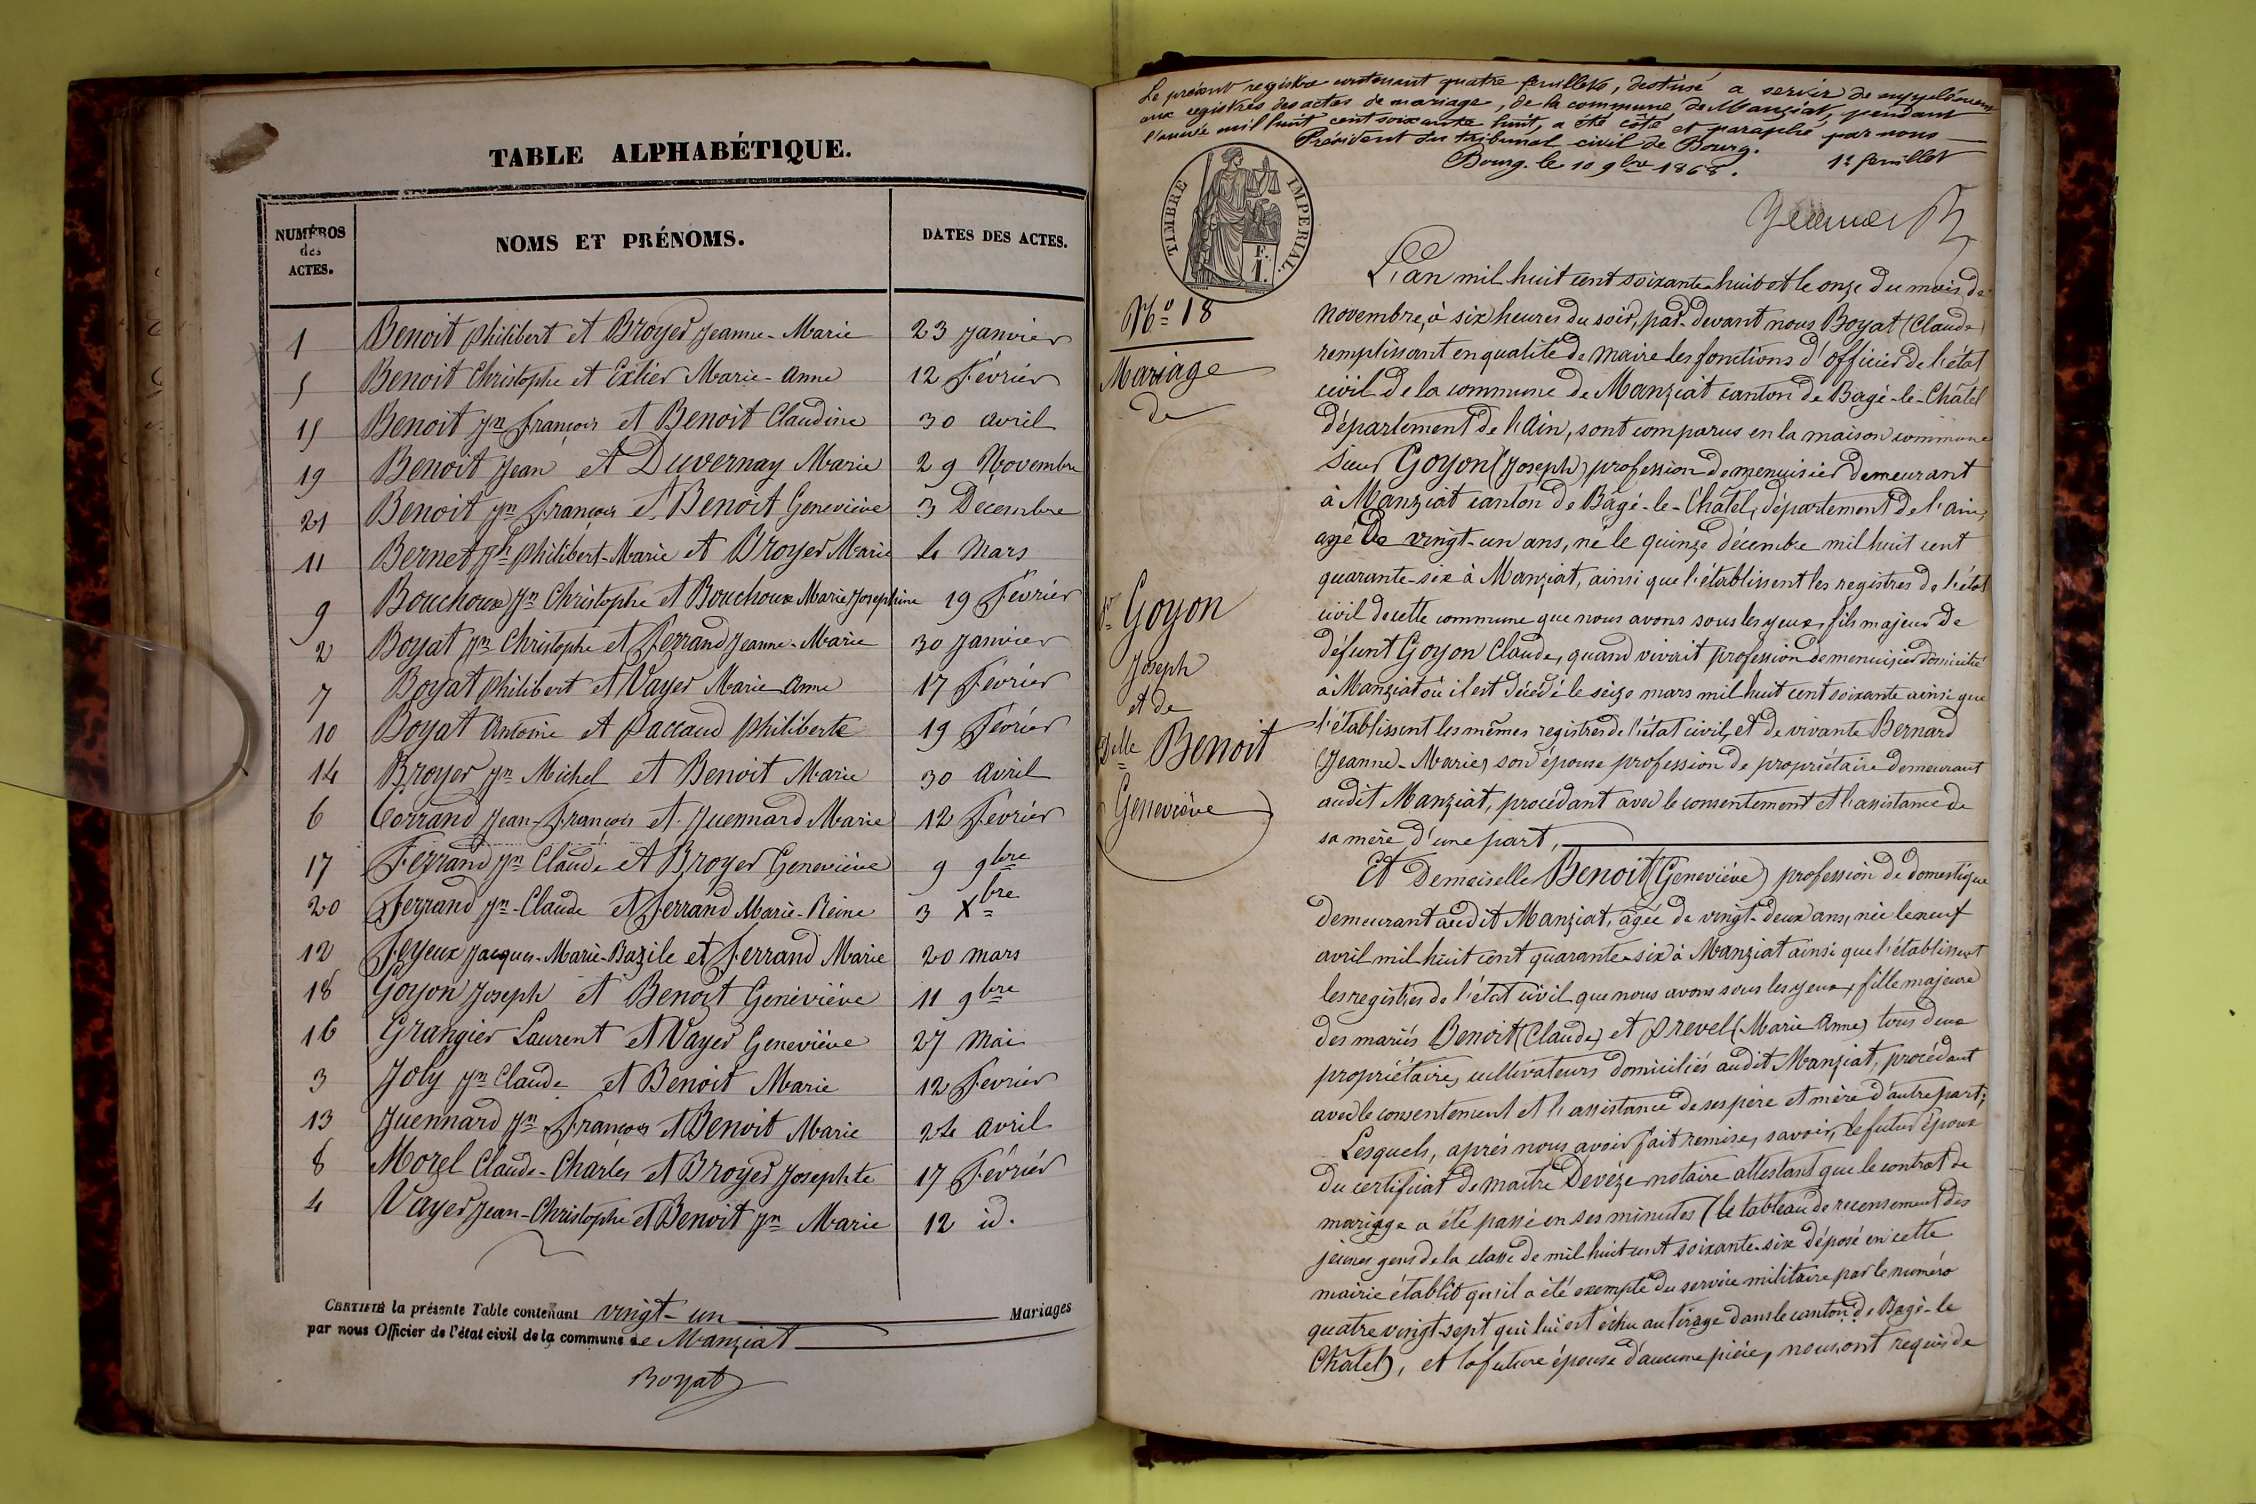 TABLE ALPHABÉTIQUE.
NUMÉROS des ACTES. NOMS ET PRÉNOMS. DATES DES ACTES.
1 Benoit Philibert et Broyer Jeanne-Marie 23 Janvier
5 Benoit Christophe et Exlier Marie-Anne 12 Février
15 Benoit Jn François et Benoit Claudine 30 avril
19 Benoit Jean et Duvernay Marie 29 Novembre
21 Benoit Jn François et Benoit Geneviève 3 Décembre
11 Bernet Jh Philibert-Marie et Broyer Marie 4 Mars
9 Bouchoux Jn Christophe et Bouchoux Marie Josephine 19 Février
2 Boyat Jn Christophe et Ferrand Jeanne-Marie 30 Janvier
7 Boyat Philibert et Vayer Marie Anne 17 Février
10 Boyat Antoine et Paccaud Philiberte 19 Février
14 Broyer Jn Michel et Benoit Marie 30 Avril
6 Corrand Jean-François et Juennard Marie 12 Février
17 Ferrand Jn Claude et Broyer Geneviève 9 9bre
20 Ferrand Jn-Claude et Ferrand Marie-Reine 3 Xbre
12 Feyeux Jacques-Marie-Bazile et Ferrand Marie 20 mars
18 Goyon Joseph et Benoit Geneviève 11 9bre
16 Grangier Laurent et Vayer Geneviève 27 Mai
3 Joly Jn Claude et Benoit Marie 12 Février
13 Juennard Jn François et Benoit Marie 24 avril
8 Morel Claude-Charles et Broyer Josephte 17 Février
4 Vayer Jean-Christophe et Benoit Jn Marie 12 id.
CERTIFIÉ la présente Table contenant vingt-un Mariages
par nous Officier de l'état civil de la commune de Manziat
Boyat
Le présent registre contenant quatre feuillets, destiné a servir de supplément
aux registres des actes de mariage, de la commune de Manziat, pendant
l'année mil huit cent soixante huit, a été côté et paraphé par nous
Président du tribunal civil de Bourg.
Bourg. le 10 9bre 1868. 1r feuillet
TIMBRE IMPERIAL.
E. 1.
No 18
Mariage
de
Sr Goyon
Joseph
et de
Delle Benoit
Geneviève
L'an mil huit cent soixante-huit et le onze du mois de
novembre, à six heures du soir, par-devant nous Boyat (Claude)
remplissant en qualité de maire les fonctions d'officier de l'état
civil de la commune de Manziat canton de Bagé-le-Châtel
département de l'Ain, sont comparus en la maison commune
sieur Goyon (Joseph) profession de menuisier demeurant
à Manziat canton de Bâgé-le-Châtel, département de l'ain,
agé de vingt-un ans, né le quinze décembre mil huit cent
quarante-six à Manziat, ainsi que l'établissent les registres de l'état
civil de cette commune que nous avons sous les yeux, fils majeur de
défunt Goyon Claude, quand vivait profession de menuisier domicilié
à Manziat où il est décédé le seize mars mil huit cent soixante ainsi que
l'établissent les mêmes registres de l'état civil, et de vivante Bernard
(Jeanne-Marie) son épouse profession de propriétaire demeurant
audit Manziat, procédant avec le consentement et l'assistance de
sa mère d'une part,
Et Demoiselle Benoit (Geneviève) profession de domestique
demeurant audit Manziat, agée de vingt-deux ans, née le neuf
avril mil huit cent quarante-six à Manziat ainsi que l'établissent
les registres de l'état civil que nous avons sous les yeux, fille majeure
des mariés Benoit (Claude) et Prevel (Marie Anne) tous deux
propriétaires, cultivateurs domiciliés audit Manziat, procédant
avec le consentement et l'assistance de ses père et mère d'autre part;
Lesquels, après nous avoir fait remise, savoir, le futur époux
du certificat de maitre Devèze notaire attestant que le contrat de
mariage a été passé en ses minutes (le tableau de recensement des
jeunes gens de la classe de mil huit cent soixante-six déposé en cette
mairie établit qu'il a été exempté du service militaire par le numéro
quatre vingt-sept qui lui est échu au tirage dans le canton de Bagé-le
Châtel), et la future épouse d'aucune pièce, nous ont requis de